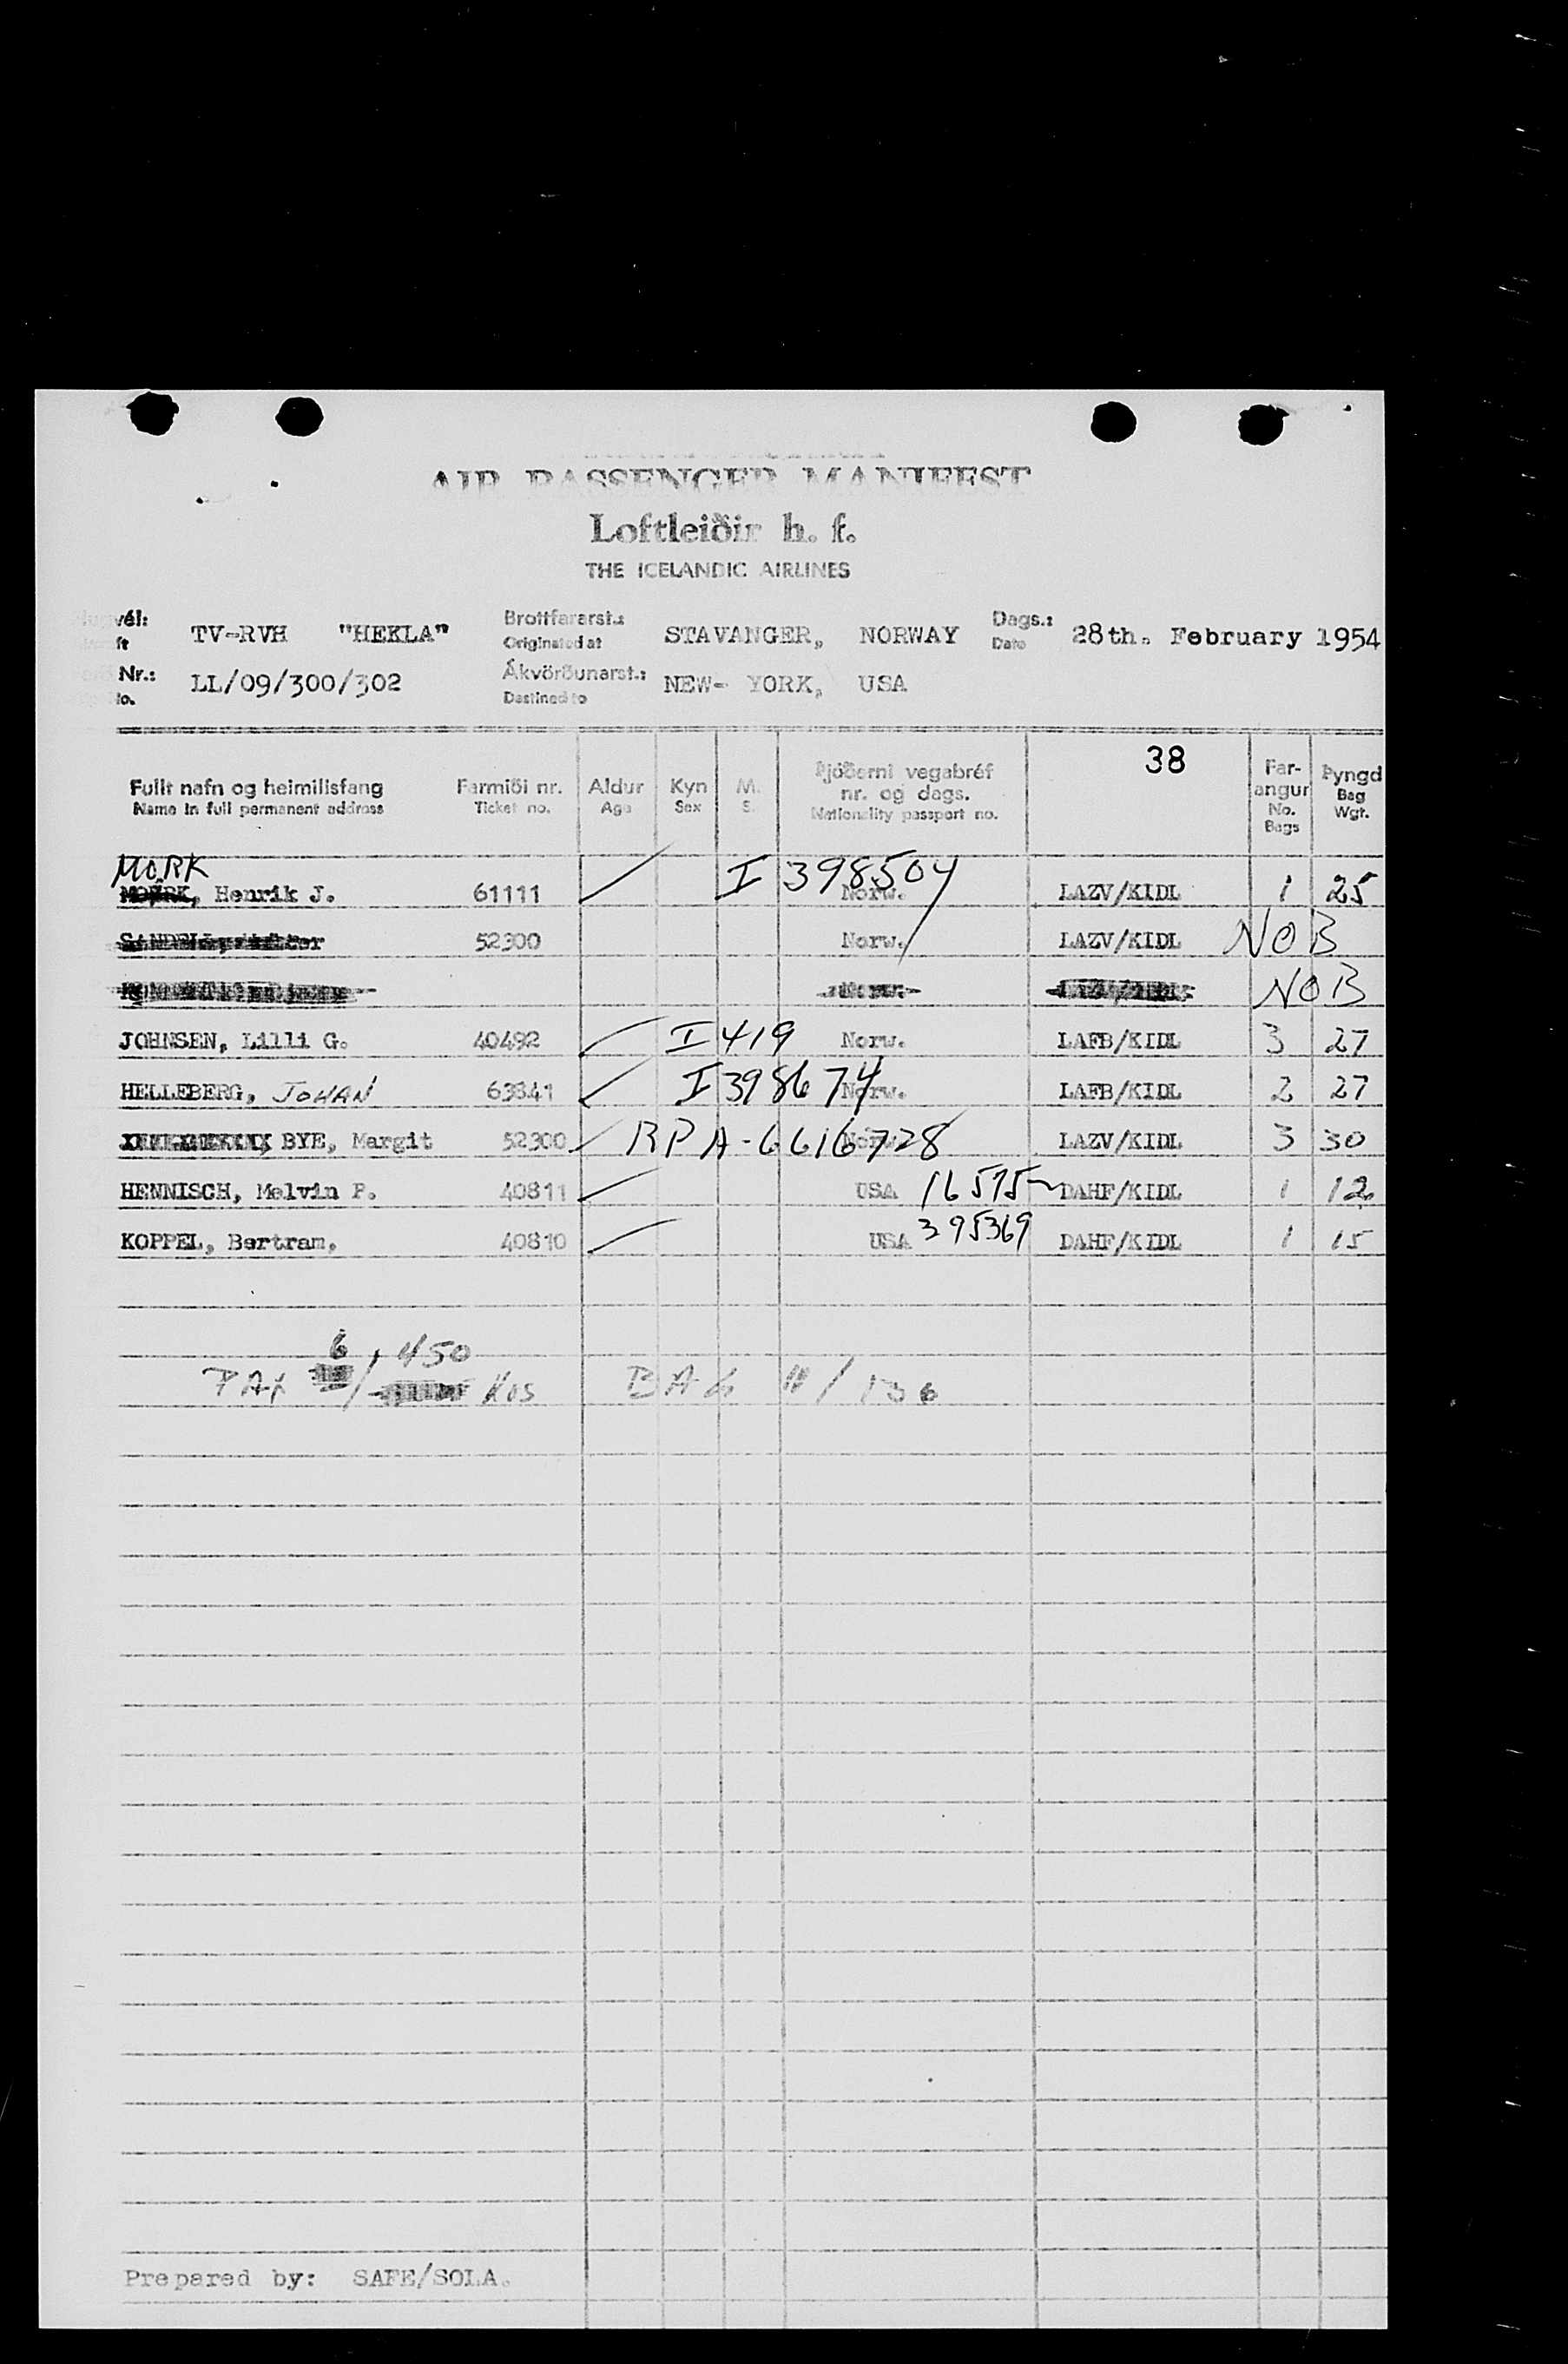 AIR PASSENGER MANIFEST
Loftleiðir h. f.
THE ICELANDIC AIRLINES
vél: TV-RVH "HEKLA" Brottfararst.: STAVANGER, NORWAY Dags.: 28th. February 1954
ft Originated at Date
Nr.: LL/09/300/302 Ákvörðunarst.: NEW- YORK, USA
No. Destined to
38
Fullt nafn og heimilisfang Farmiði nr. Aldur Kyn M. Þjóðerni vegabréf nr. og dags. Far-angur Þyngd
Name in full permanent address Ticket no. Age Sex S. Nationality passport no. No. Bags Bag Wgt.
MORK
Henrik J. 61111 I 398504 Norw. LAZV/KIDL 1 25
52300 Norw. LAZV/KIDL NOB
NOB
JOHNSEN, Lilli G. 40492 I 419 Norw. LAFB/KIDL 3 27
HELLEBERG, JOHAN 63841 I 398674 Norw. LAFB/KIDL 2 27
BYE, Margit 52300 RPA-6616728 Norw. LAZV/KIDL 3 30
HENNISCH, Melvin P. 40811 USA 16575 DAHF/KIDL 1 12
KOPPEL, Bertram. 40810 USA 395369 DAHF/KIDL 1 15
6 450
PAX / KOS BAG 11/136
Prepared by: SAFE/SOLA.